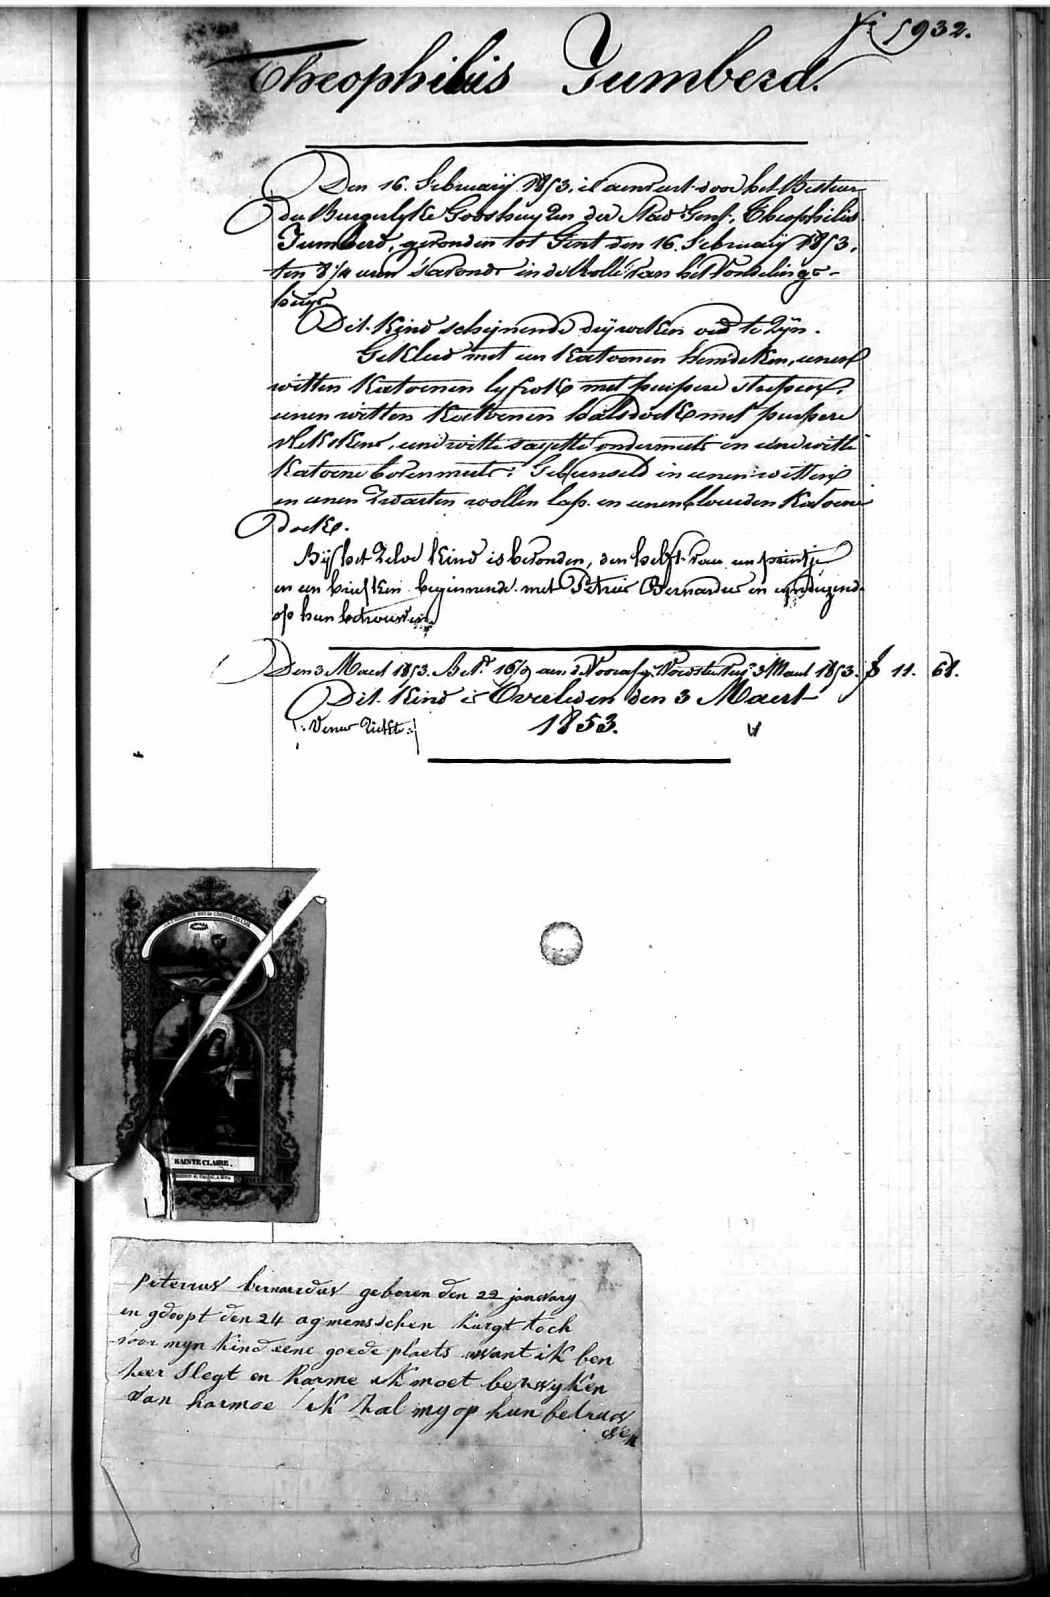 N: 5932.
Theophilus Jumberd.
Den 16. February 1853, is aenveert door het Bestuer
der Burgerlyke Godshuyzen der Stad Gent, Theophilus
Jumberd, gevonden tot Gent den 16. February 1853,
ten 8 1/4 uren 'savonds in de Rolle van het Vondelings-
huys
Dit Kind schijnende dry weken oud te zijn.
Gekleed met een Katoenen hemdeken, eenen
witten Katoenen lyfrok met purpere strepen,
eenen witten Katoenen halsdoek met purpere
vlekskens, eene witte sayette ondermuts en eene witte
Katoene bovenmuts: Gebunseld in eenen witten
en eenen zwarten wollen lap en eenen blauwen Katoene
doek.
Bij het zelve Kind is bevonden, den helft van een printje
en een briefken beginnende met Petrus Bernardus en eyndigende
op hun betrouwen
Den 3 Maert 1853. Bet. aen 3 Maert 1853. f 11. 68.
Dit Kind is Overleden den 3 Maert
1853.
(: Vener Ziekte :)
SAINTE CLAIRE.
petenus bernardus geboren den 22 janevary
en gdoopt den 24 ag menschen kurgt toch
voor myn kind eene goede plaets want ik ben
heer slegt en harme ik moet bezwyken
van harmoe ik zal my op hun betrauw
en